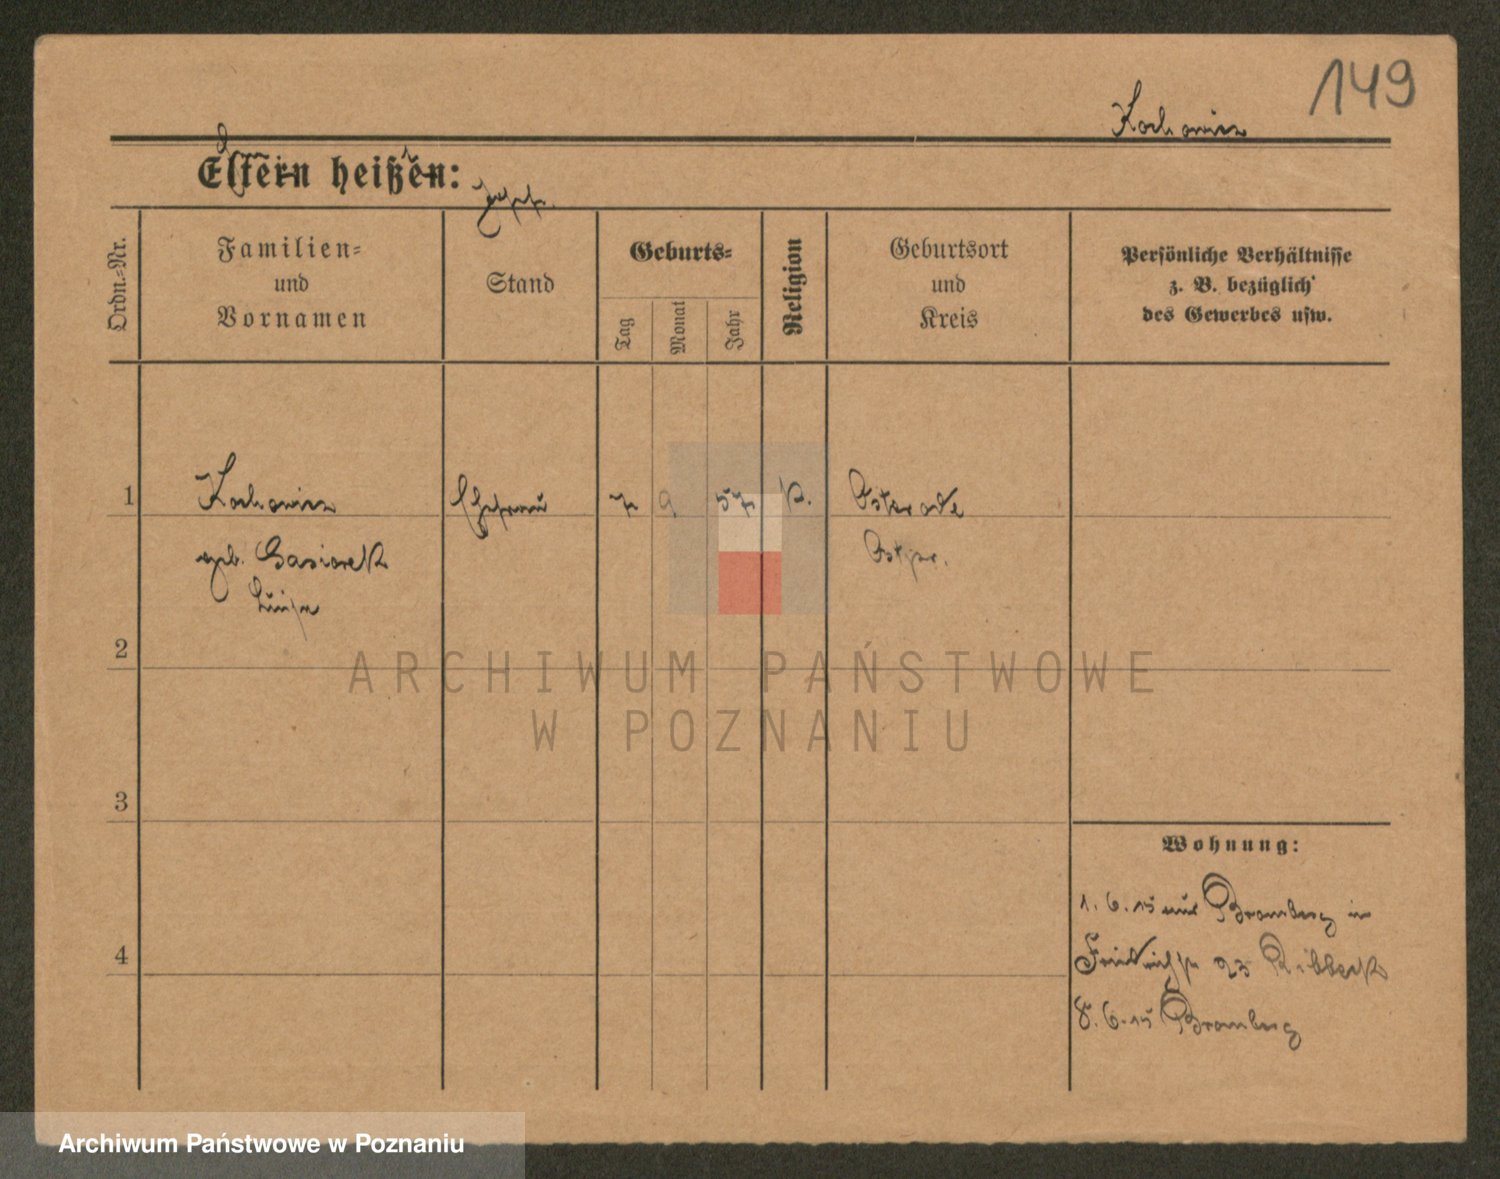 149
Kochowicz
Eltern heißen:
Ordn.-Nr.
Familien-
und
Vornamen
Stand
Geburts-
Tag
Monat
Jahr
Religion
Geburtsort
und
Kreis
Persönliche Verhältnisse
z. B. bezüglich
des Gewerbes usw.
1
Kochowicz Ehefrau 7 9 57 k. Osterode
geb. Gasiorek Ostpr.
Luise
2
3
4
Wohnung:
1. 6. 15 aus Bromberg in
Friedrichstr 23 Ribbeck
8. 6. 15 Bromberg
ARCHIWUM PAŃSTWOWE
W POZNANIU
Archiwum Państwowe w Poznaniu